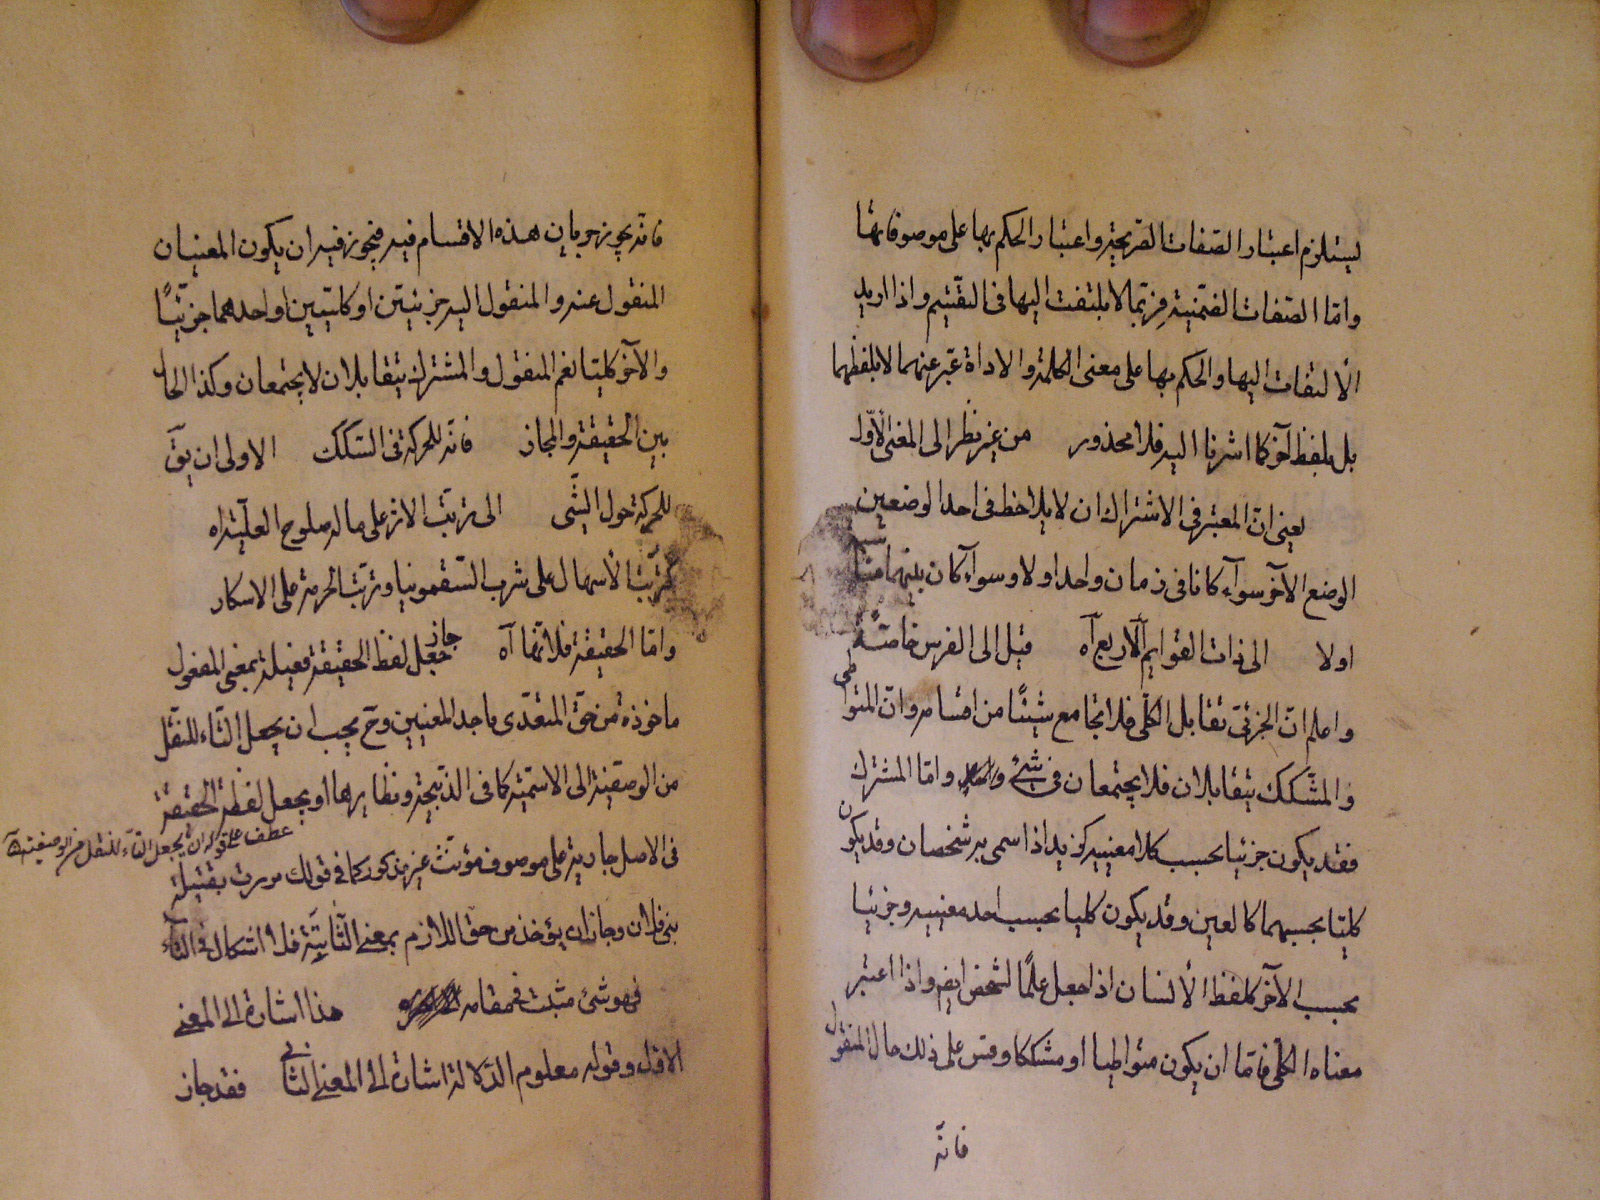 يستلزم اعتبار الصفات الصريحة واعتبار الحكم بها على موصوفاتها
وامّا الصّفات الضمّنية فربّما لا يلتفت اليها فى التقسيم واذا اريد
الألتفات اليها والحكم بها على معنى الكلمة والاداة عبّر عنهما لا بلفظهما
بل بلفظ آخر كما اشرنا اليه فلا محذور من غير نظر الى المعنى الأوّل
يعنى انّ المعتبر فى الاشتراك ان لا يلاحظ فى احد الوضعين
الوضع الآخر سوآء كانا فى زمان واحد او لا وسوآء كان بينهما مناسبة
او لا الى ذات القوايم الأربع آه قيل الى الفرس خاصّة
واعلم انّ الجزئىّ تقابل الكلّى فلا تجامع شيئًا من اقسامه وانّ المتواطى
والمشكك يتقابلان فلا يجتمعان فى شئ وامّا المشترك
فقد يكون جزئيا بحسب كلا معنييه كزيد اذا سمى به شخصان وقد يكون
كليّا بحسبهما كالعين وقد يكون كليا بحسب احد معنييه وجزئيا
بحسب الآخر كلفظ الأنسان اذا جعل علمًا لشخص ايضم واذا اعتبر
معناه الكلّى فامّا ان يكون متواطيا او مشككا وقس على ذلك حال المنقول
فانّه
فانّه يجوز جريان هذه الاقسام فيه فيجوز فيه ان يكون المعنيان
المنقول عنه والمنقول اليه جزئيتين او كليّين او احدهما جزئيّا
والآخر كليّا نعم المنقول والمشترك يتقابلان لا يجتمعان وكذا الحال
بين الحقيقة والمجاز فانّه للحركة فى السّكك الاولى ان يقَ
للحركة حول الشّى الى ترتّب الاثر على ما له صلوح العليّة اه
كترتّب الأسهال على شرب السّقمونيا وترتّب الحرمة على الاسكار
وامّا الحقيقة فلانّها آه جاز جعل لفظ الحقيقة فعيلة بمعنى المفعول
ماخوذة من حقّ المتعدّى باحد المعنيين وح يجب ان يجعل التّاء للنّقل
من الوصفيّة الى الاسميّة كما فى الذّبيحة ونظايرها او يجعل لفظة الحقيقة
عطف على قوله ان يجعل التّاء للنقل من الوصفية آه
فى الاصل جارية على موصوف مؤنّث غير مذكور كما فى قولك مررت بقتيلة
بنى فلان وجاز ان يؤخذ من حقّ اللازم بمعنى الثّابتة فلا اشكال فى التّآء
فهو شئ مثبت فى مقامه هذا اشارة الى المعنى
الاوّل وقوله معلوم الدّلالة اشارة الى المعنى الثّانى فقد جاز